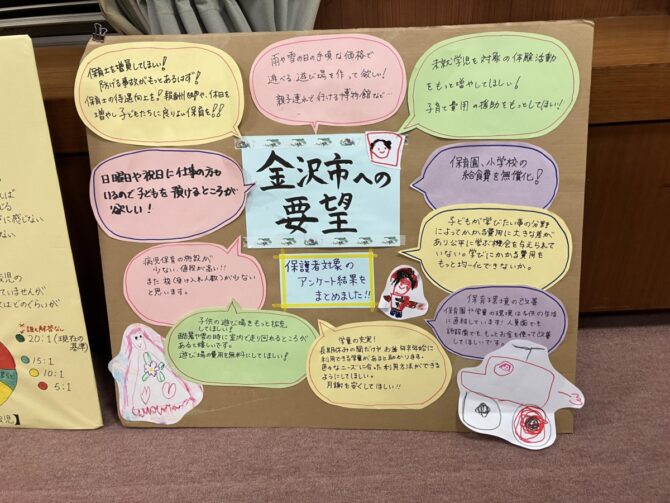 保育士を増員してほしい!
防げる事故がもっとあるはず!
保育士の待遇向上を!報酬UPや、休日を
増やし子どもたちに良りよい保育を!!
雨や雪の日の手頃な価格で
遊べる遊び場を作って欲しい!
親子連れで行ける博物館など…
未就学児を対象の体験活動
をもっと増やしてほしい!
子育て費用の援助をもっとしてほしい!
日曜日や祝日に仕事の方も
いるので子どもを預けるところが
欲しい!
金沢市への
要望
保育園、小学校の
給食費を無償化!
保護者対象の
アンケート結果を
まとめました!!
子どもが学びたい事の分野
によってかかる費用に大きな差が
あり公平に学ぶ機会を与えられて
いない。学びにかかる費用を
もっと均一化できないか。
病児保育の施設が
少ない、値段が高い!!
また枠(受け入れ人数)が少ない
と思います。
子供の遊び場をもっと拡充
してほしい!
酷暑や雪の時に室内で走り回れるところが
あると嬉しいです。
遊び場の費用を無料にしてほしい!
学童の充実!
長期休みの間だけやお盆 年末年始に
利用できる学童があると助かります。
色々なニーズに合った利用方法ができる
ようにしてほしい。
月謝を安くしてほしい!!
保育環境の改善
保育園や学童の環境は子供の生活
に直結しています!人員面でも
設備面でももっとお金を使って改善
してほしいです。
誰も解答なし
20:1(現在の
基準)
15:1
10:1
5:1